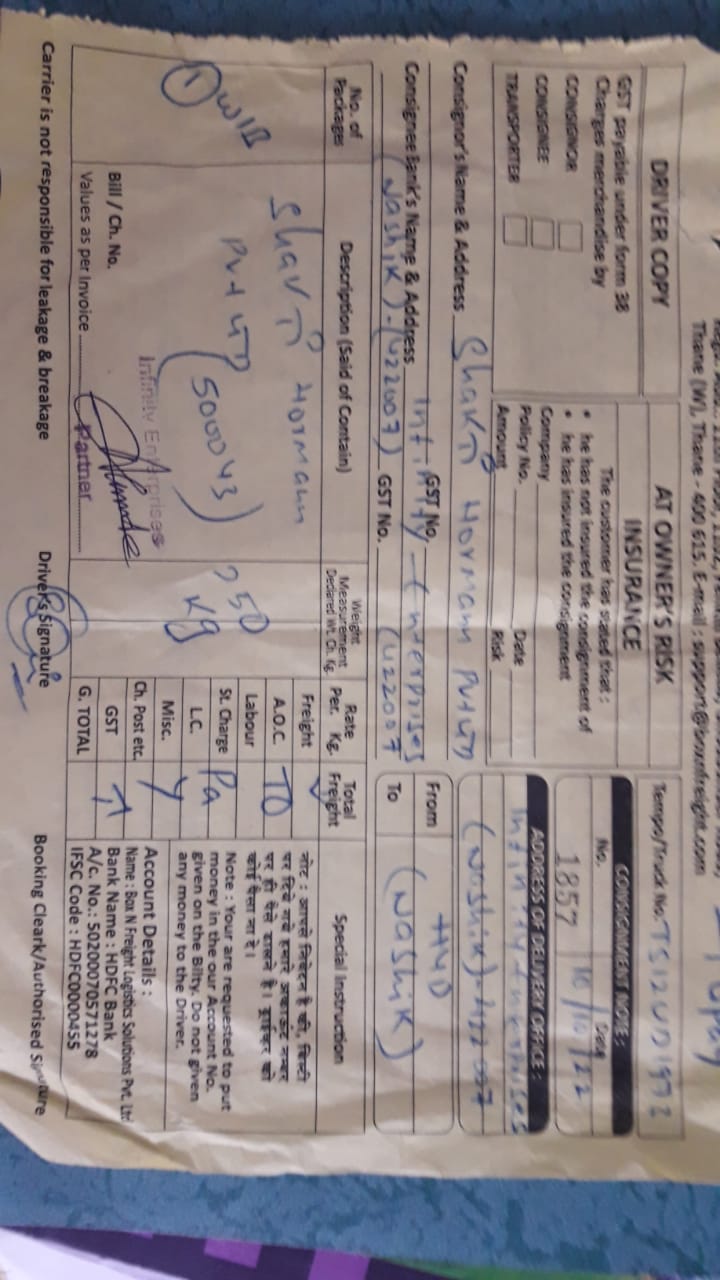 Thane (W), Thane - 400 615. E-mail : support@boxnfreight.com
DRIVER COPY
GST payable under form 38
Charges merchandise by
CONSIGNOR
CONSIGNEE
TRANSPORTER
AT OWNER'S RISK
INSURANCE
The customer has stated that :
• he has not insured the consignment of
• he has insured the consignment
Company
Policy No. Date
Amount Risk
Tempo/Truck No. TS12UD1973
CONSIGNMENT NOTE :
No. Date
1857 10/10/22
ADDRESS OF DELIVERY OFFICE :
Infinity Enterprises
(Nashik)-422007
Consignor's Name & Address Shakti Hormann Pvt LTD
GST No.
Consignee Bank's Name & Address Infinity Enterprises
(Nashik)-(422007) GST No. (422007
From HYD
To (Nashik)
No. of Packages
Description (Said of Contain)
Weight Measurement Declared Wt. Ch. Kg.
Rate Per. Kg.
Total Freight
Special Instruction
① WIB
Shakti Hormann
Pvt LTD
(500043)
50
Kg
Freight
A.O.C. TO
Labour
St. Charge Pa
L.C.
Misc. y
Ch. Post etc.
GST
G. TOTAL
नोट : आपसे निवेदन है की, बिल्टी
पर दिये गये हमारे अकाऊंट नम्बर
पर ही पैसे डालने है। ड्राईव्हर को
कोई पैसा ना दे।
Note : Your are requested to put
money in the our Account No.
given on the Bilty. Do not given
any money to the Driver.
Account Details :
Name : Box N Freight Logistics Solutions Pvt. Ltd
Bank Name : HDFC Bank
A/c. No.: 50200070571278
IFSC Code : HDFC0000455
Infinity Enterprises
Partner
Bill / Ch. No.
Values as per Invoice
Carrier is not responsible for leakage & breakage
Driver's Signature
Booking Cleark/Authorised Signature